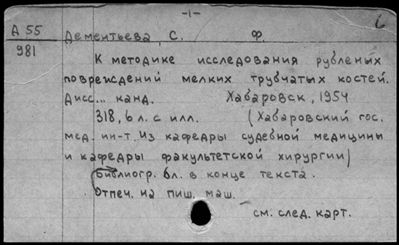 -1-
А 55
981
Дементьева, С. Ф.
К методике исследования рубленых
повреждений мелких трубчатых костей.
Дисс... канд. Хабаровск, 1954
318, 6 л. с илл. (Хабаровский гос.
мед. ин-т. Из кафедры судебной медицины
и кафедры факультетской хирургии)
Библиогр. 6л. в конце текста.
Отпеч. на пиш. маш.
см. след. карт.